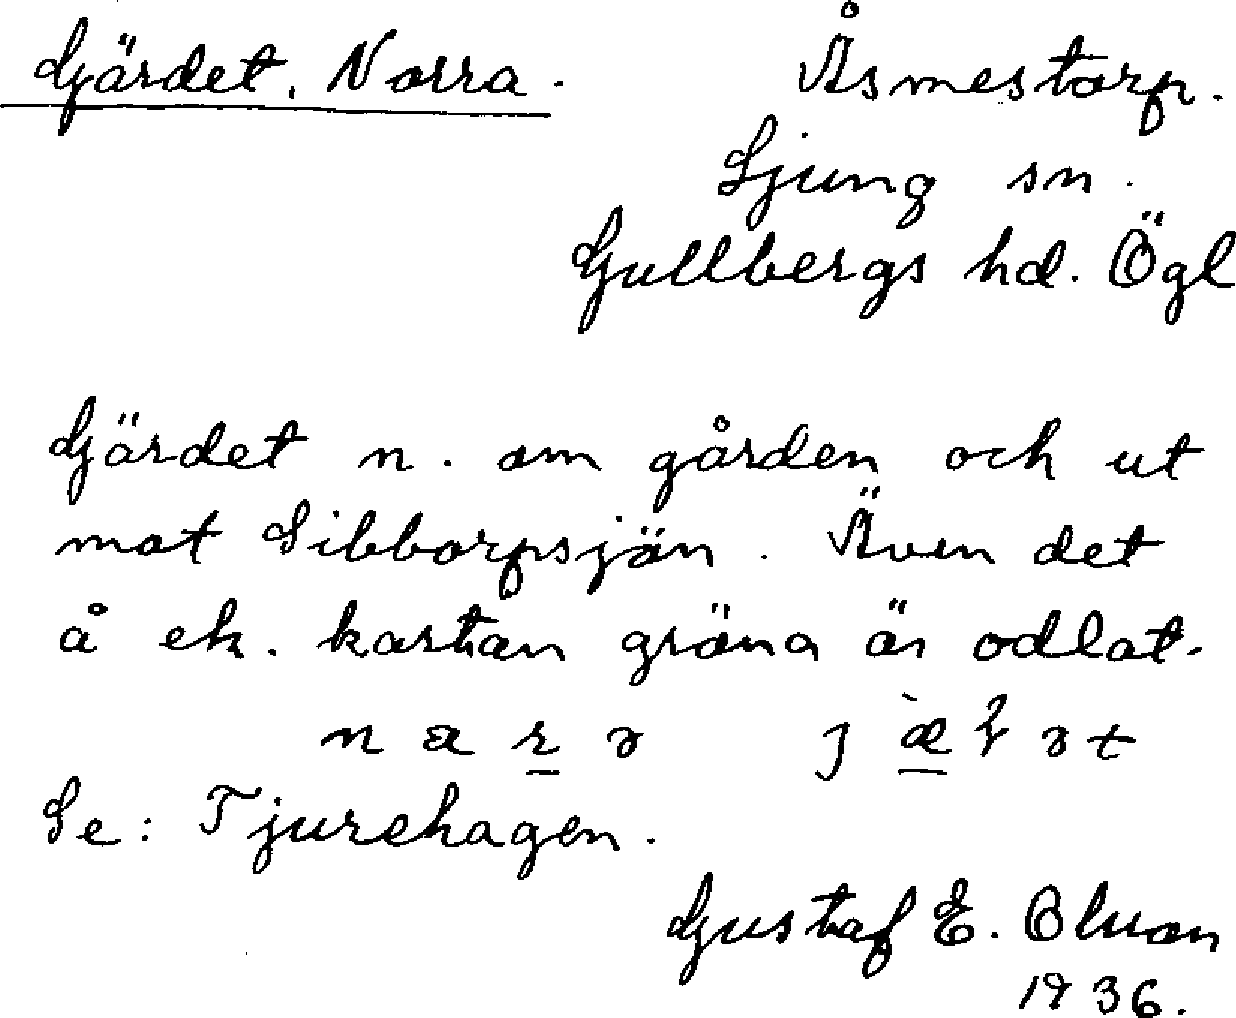 Gärdet, Norra. Åsmestorp.
Ljung sn.
Gullbergs hd. Ögl
Gärdet n. om gården och ut
mot Sibborpsjön. Även det
å ek. kartan gröna är odlat.
Se: Tjurehagen.
Gustaf E. Olson
1936.